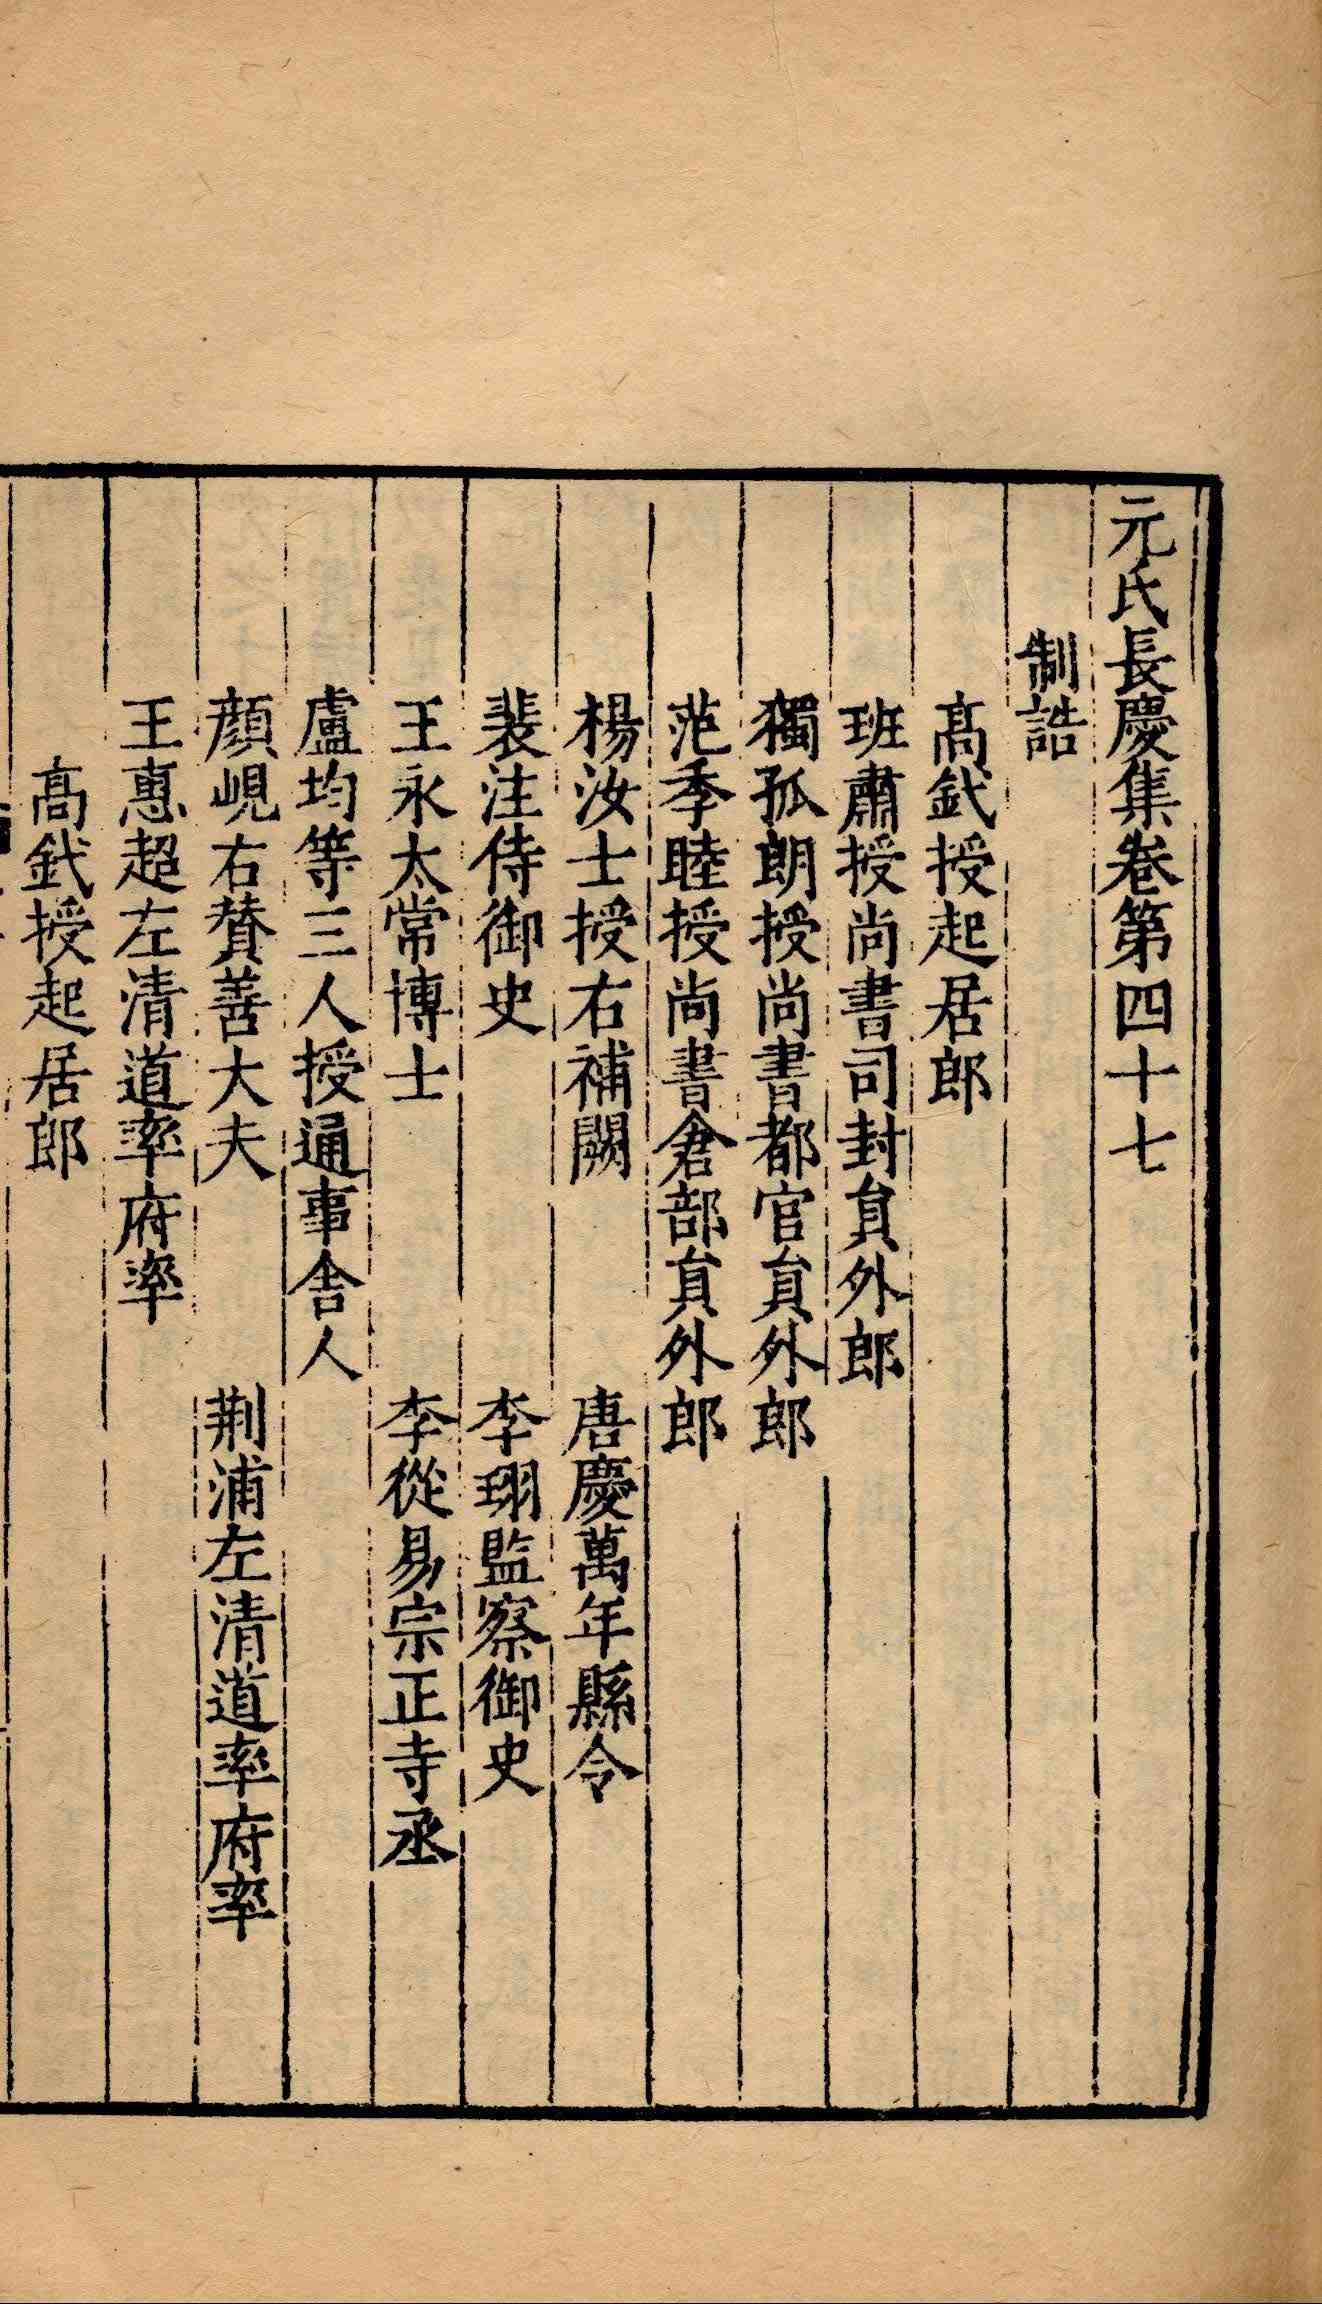 元氏長慶集卷第四十七
制誥
髙釴授起居郎
班肅授尚書司封貟外郎
獨孤朗授尚書都官貟外郎
范季睦授尚書倉部貟外郎
楊汝士授右補闕　唐慶萬年縣令
裴注侍御史　李珝監察御史
王永太常博士　李從易宗正寺丞
盧均等三人授通事舍人
顔峴右賛善大夫　荆浦左清道率府率
王惠超左清道率府率
髙釴授起居郎